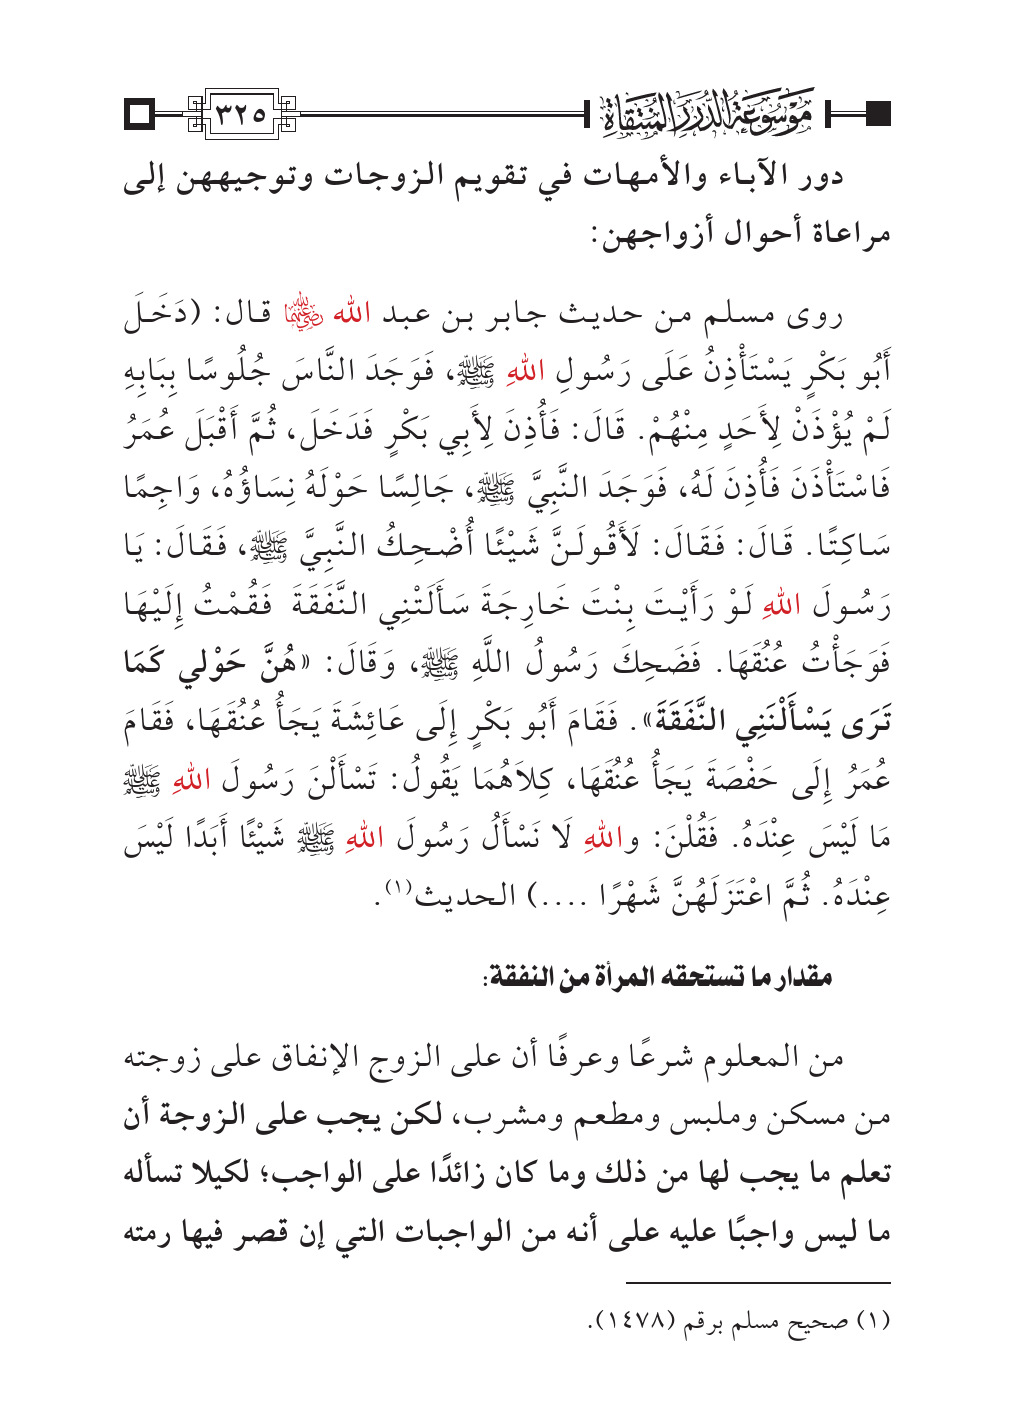 موسوعة الدرر المنتقاة ٣٢٥
دور الآباء والأمهات في تقويم الزوجات وتوجيههن إلى
مراعاة أحوال أزواجهن:
روى مسلم من حديث جابر بن عبد الله رضي الله عنهما قال: (دَخَلَ
أَبُو بَكْرٍ يَسْتَأْذِنُ عَلَى رَسُولِ اللهِ ﷺ، فَوَجَدَ النَّاسَ جُلُوسًا بِبَابِهِ
لَمْ يُؤْذَنْ لِأَحَدٍ مِنْهُمْ. قَالَ: فَأُذِنَ لِأَبِي بَكْرٍ فَدَخَلَ، ثُمَّ أَقْبَلَ عُمَرُ
فَاسْتَأْذَنَ فَأُذِنَ لَهُ، فَوَجَدَ النَّبِيَّ ﷺ، جَالِسًا حَوْلَهُ نِسَاؤُهُ، وَاجِمًا
سَاكِتًا. قَالَ: فَقَالَ: لَأَقُولَنَّ شَيْئًا أُضْحِكُ النَّبِيَّ ﷺ، فَقَالَ: يَا
رَسُولَ اللهِ لَوْ رَأَيْتَ بِنْتَ خَارِجَةَ سَأَلَتْنِي النَّفَقَةَ فَقُمْتُ إِلَيْهَا
فَوَجَأْتُ عُنُقَهَا. فَضَحِكَ رَسُولُ اللَّهِ ﷺ، وَقَالَ: «هُنَّ حَوْلي كَمَا
تَرَى يَسْأَلْنَنِي النَّفَقَةَ». فَقَامَ أَبُو بَكْرٍ إِلَى عَائِشَةَ يَجَأُ عُنُقَهَا، فَقَامَ
عُمَرُ إِلَى حَفْصَةَ يَجَأُ عُنُقَهَا، كِلاَهُمَا يَقُولُ: تَسْأَلْنَ رَسُولَ اللهِ ﷺ
مَا لَيْسَ عِنْدَهُ. فَقُلْنَ: واللهِ لَا نَسْأَلُ رَسُولَ اللهِ ﷺ شَيْئًا أَبَدًا لَيْسَ
عِنْدَهُ. ثُمَّ اعْتَزَلَهُنَّ شَهْرًا ....) الحديث(١).
مقدار ما تستحقه المرأة من النفقة:
من المعلوم شرعًا وعرفًا أن على الزوج الإنفاق على زوجته
من مسكن وملبس ومطعم ومشرب، لكن يجب على الزوجة أن
تعلم ما يجب لها من ذلك وما كان زائدًا على الواجب؛ لكيلا تسأله
ما ليس واجبًا عليه على أنه من الواجبات التي إن قصر فيها رمته
(١) صحيح مسلم برقم (١٤٧٨).